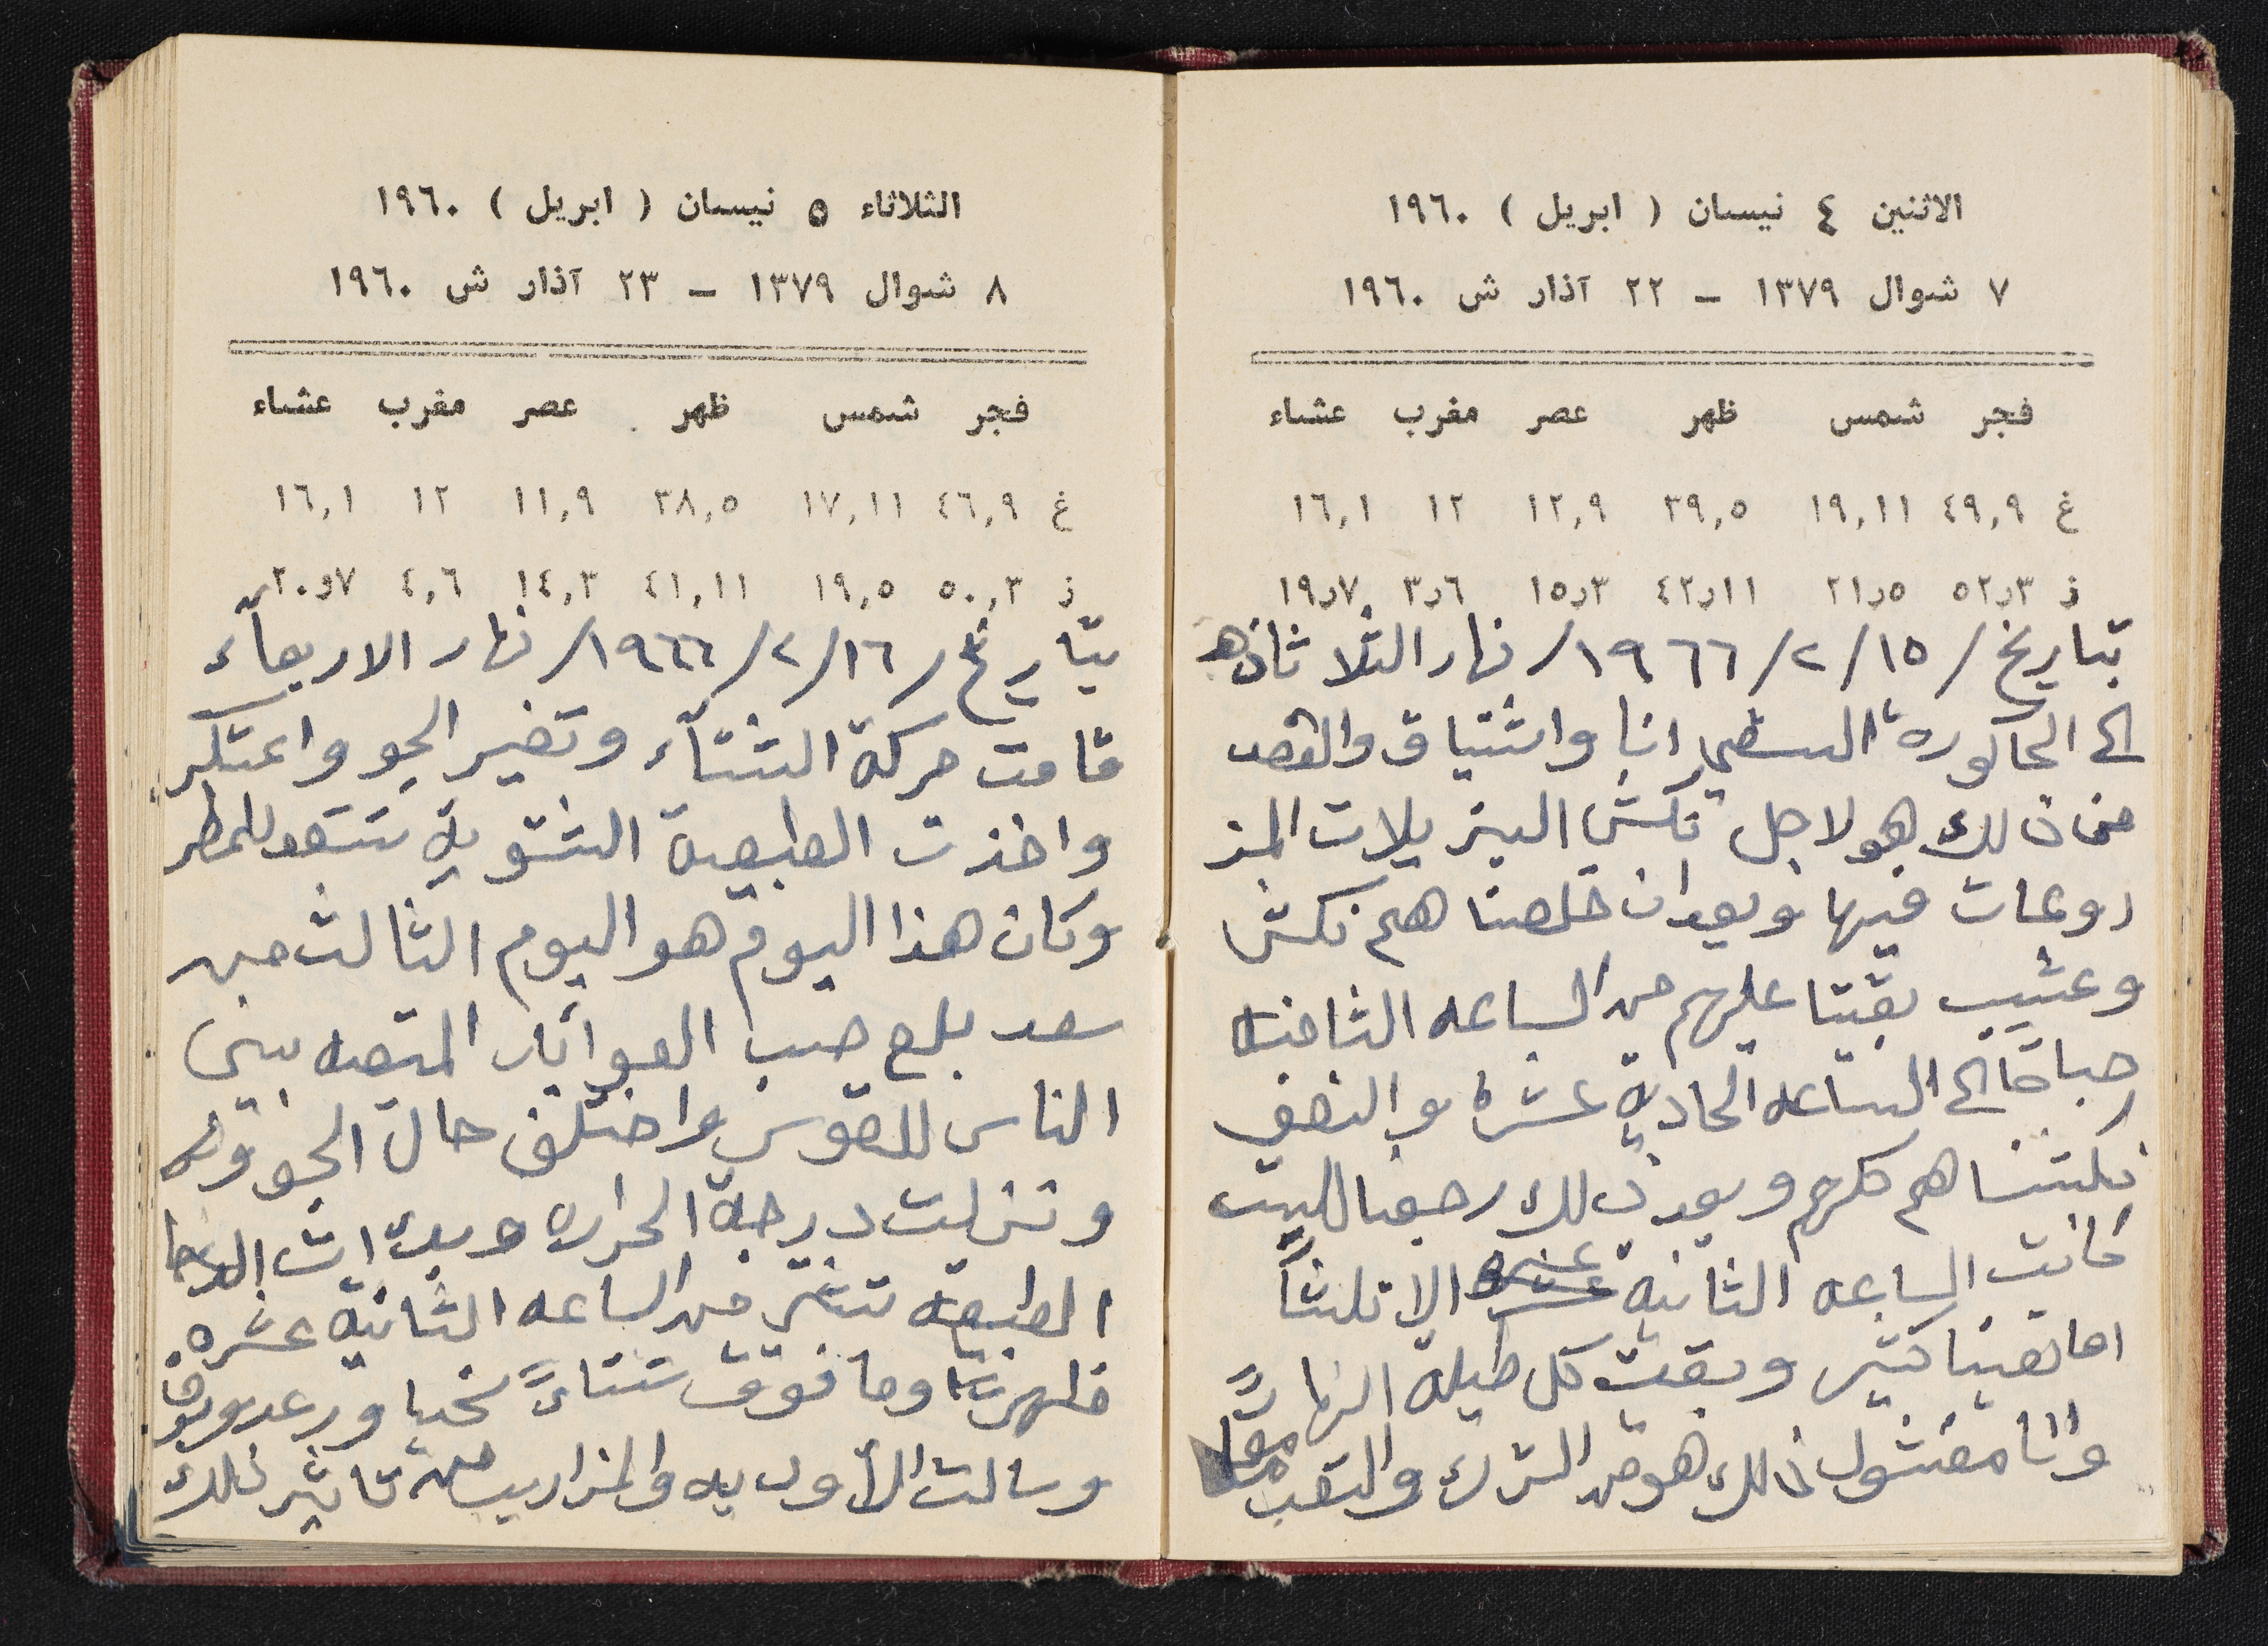 الاثنين ٤ نيسان ( ابريل ) ١٩٦٠
٧ شوال ١٣٧٩ – ٢٢ آذار ش ١٩٦٠
فجر شمس ظهر عصر مغرب عشاء
غ ٤٩,٩ ١٩,١١ ٣٩,٥ ١٢,٩ ١٢ ١٦,١
ز ٥٢ر٣ ٢١ر٥ ٤٢ر١١ ١٥ر٣ ٣ر٦ ١٩ر٧
بتاريخ /١٥/٢/١٩٦٦/ نهار الثلاثا
الى الحاكوره انا واشتياق والقصد
من ذلك هو لاجل نكش البنزيلات المز
روعات فيها وبعد ان خلصناهم نكش
وعشيب بقينا عليهم من الساعه الثامنه
صباحًا الى الساعه الحادية عشره والنصف
نكشناهم كلهم وبعد ذلك رجعنا للبيت
كانت الساعه الثانيه عشره الا ثلثاً
اما تعبنا كثير وبقيت كل طيلة النهار
وانا مفشول ذلك هو من الترك والتعب معاً
الثلاثاء ٥ نيسان ( ابريل ) ١٩٦٠
٨ شوال ١٣٧٩ – ٢٣ آذار ش ١٩٦٠
فجر شمس ظهر عصر مغرب عشاء
غ ٤٦,٩ ١٧,١١ ٣٨,٥ ١١,٩ ١٢ ١٦,١
ز ٥٠,٣ ١٩,٥ ٤١,١١ ١٤,٣ ٤,٦ ٢٠و٧
بتاريخ /١٦/٢/١٩٦٦/ نهار الاربعآء
قامت حركة الشتآء وتغير الجو واعتكر
واخذت الطبيعة الشتوية تستعد للمطر
وكان هذا اليوم هو اليوم الثالث من
سعد بلع حسب العوايد المتبعه بين
الناس للطقوس واختلف حال الجو وقته
ونزلت درجة الحراره وبدات
الطبيعه تتغير من الساعه الثانية عشره
ظهرًا وما فوق شتاءً ورعد وبروق
وسالت الأوديه والمزاريب من تاثير ذلك